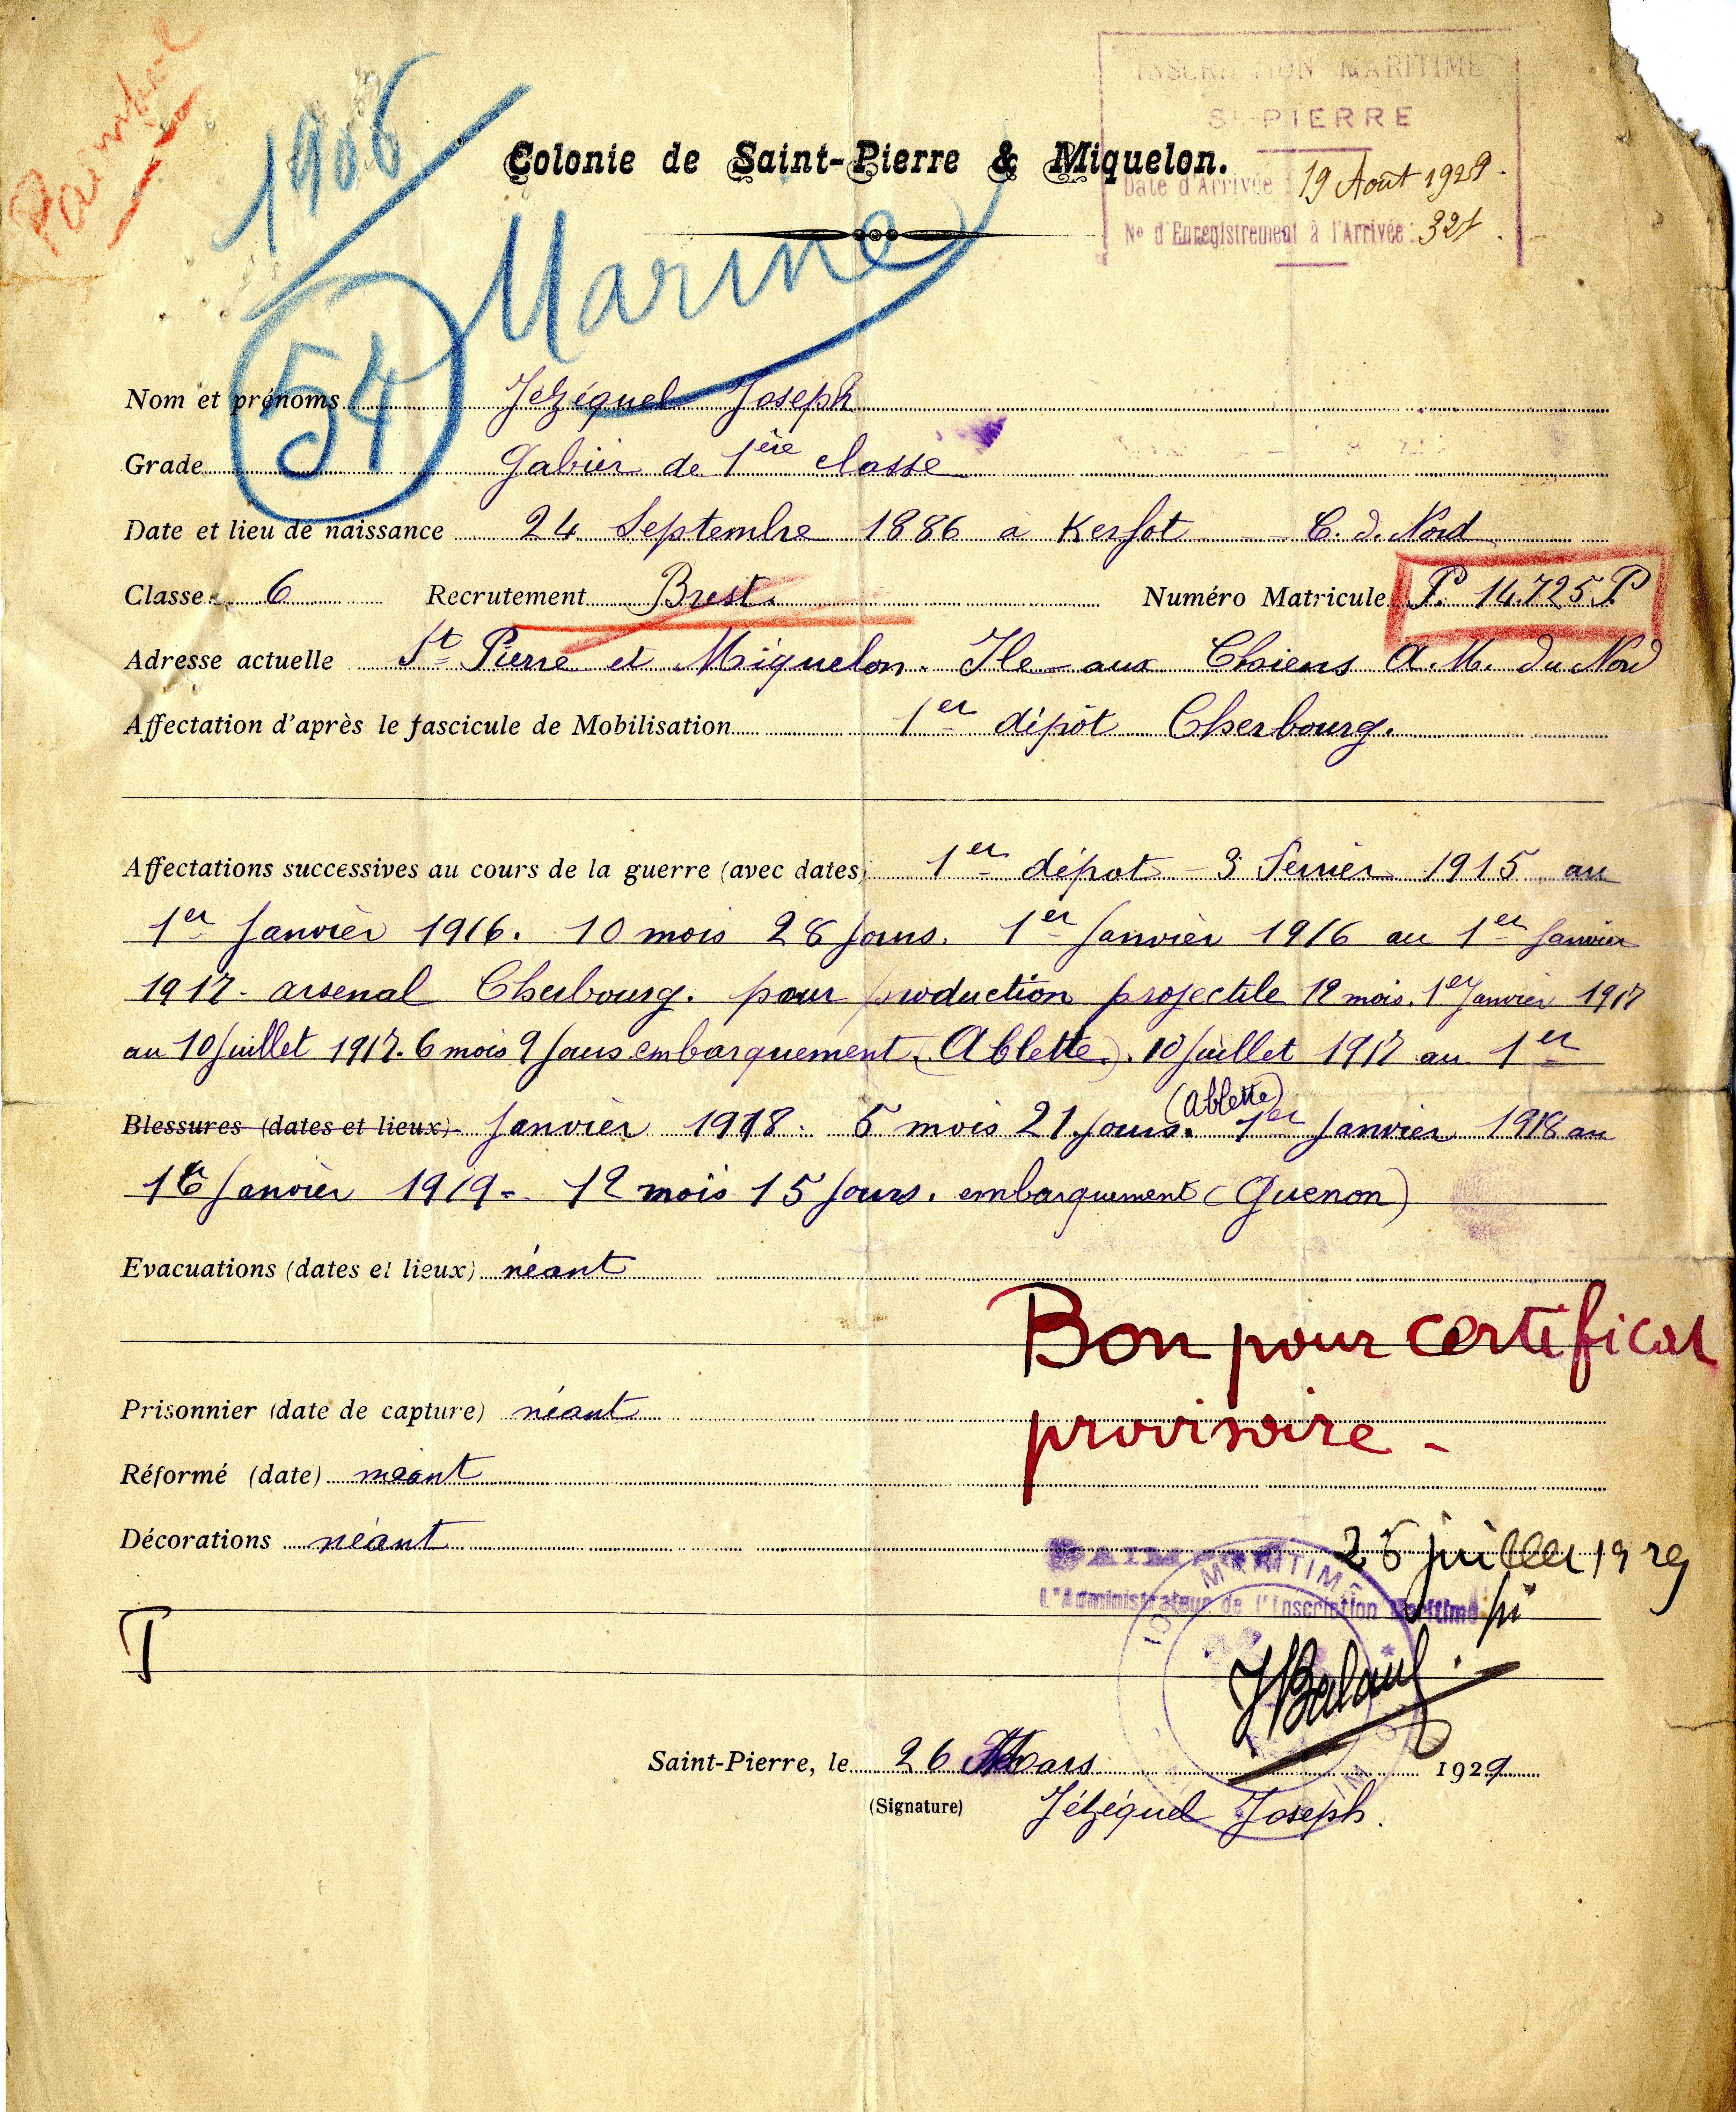 Paimpol
1906
INSCRIPTION MARITIME
St-PIERRE
Colonie de Saint-Pierre & Miquelon.
Date d'Arrivée : 19 Août 1929.
No d'Enregistrement à l'Arrivée : 321.
Marine
54
Nom et prénoms Jézéquel Joseph
Grade Gabier de 1ère classe
Date et lieu de naissance 24 Septembre 1886 à Kerfot - C. d. Nord
Classe 6 Recrutement Brest. Numéro Matricule P. 14.725 P
Adresse actuelle St Pierre et Miquelon. Ile-aux Chiens A.M. du Nord
Affectation d'après le fascicule de Mobilisation 1er dépôt Cherbourg.
Affectations successives au cours de la guerre (avec dates) 1er dépot - 3 Fevrier 1915 au
1er Janvier 1916. 10 mois 28 Jours. 1er Janvier 1916 au 1er Janvier
1917 - arsenal Cherbourg. pour production projectile 12 mois. 1er Janvier 1917
au 10 Juillet 1917. 6 mois 9 Jours embarquement (Ablette). 10 Juillet 1917 au 1er
(Ablette)
Blessures (dates et lieux) Janvier 1918. 5 mois 21 Jours. 1er Janvier 1918 au
16 Janvier 1919 - 12 mois 15 Jours. embarquement (Guenon)
Evacuations (dates et lieux) néant
Bon pour certificat
Prisonnier (date de capture) néant
provisoire -
Réformé (date) néant
Décorations néant
PAIMPOL 26 juillet 1929
MARITIME
L'Administrateur de l'Inscription Maritime pi
T
Saint-Pierre, le 26 Mars 1929
(Signature) Jézéquel Joseph.